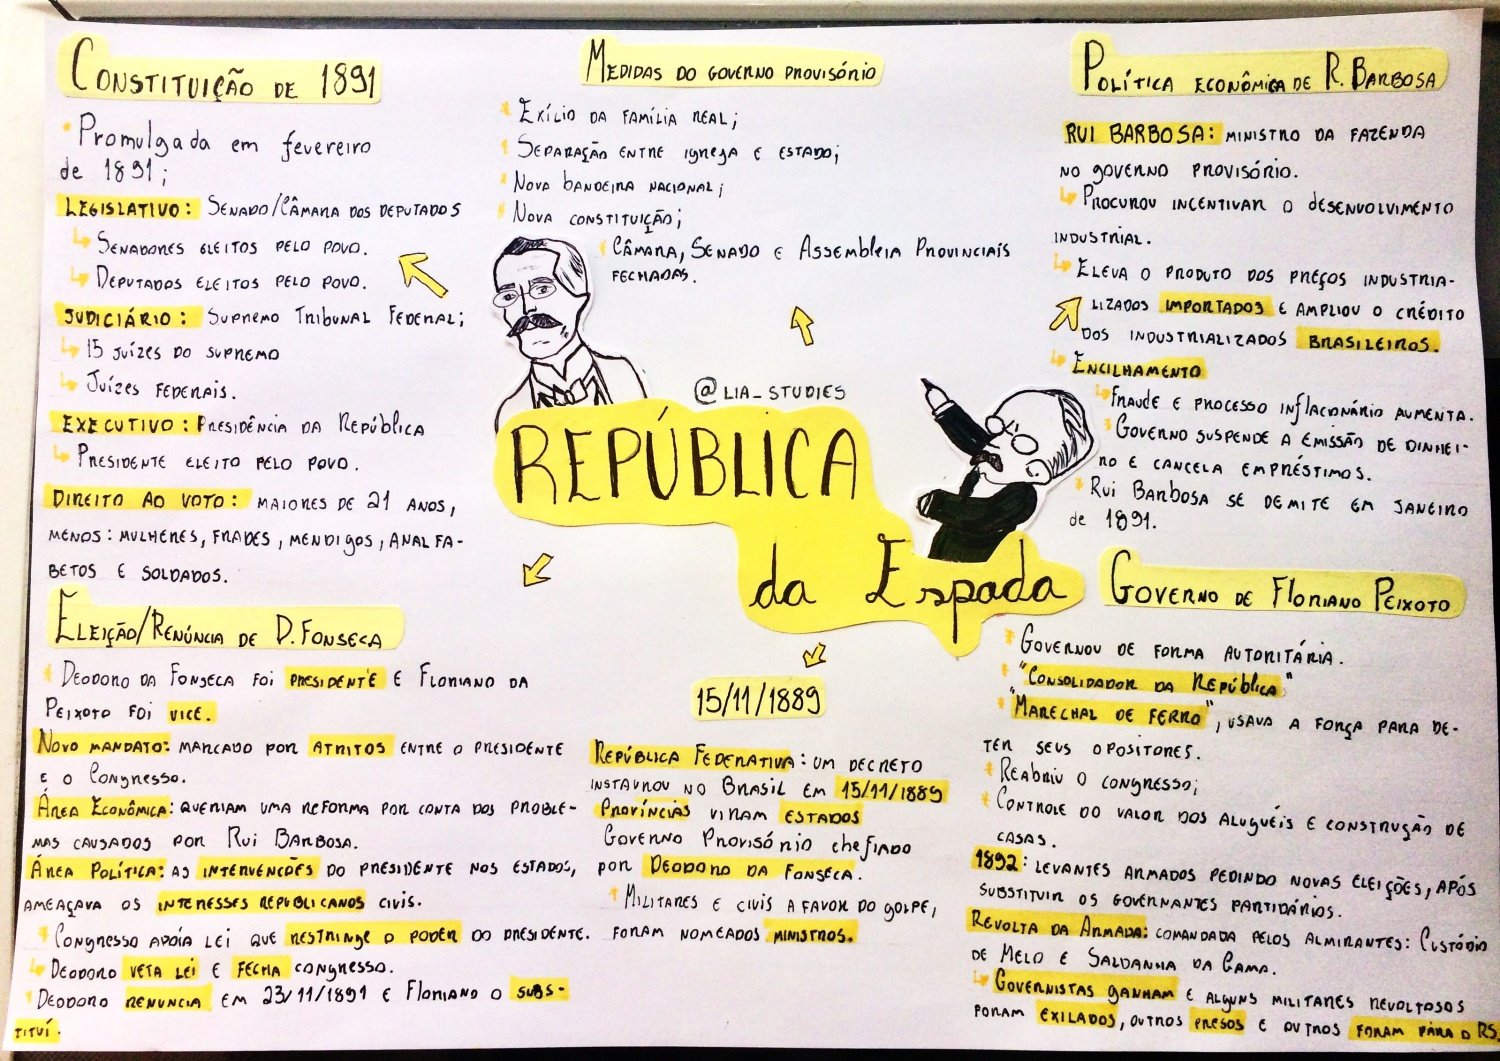 CONSTITUIÇÃO DE 1891
Promulgada em fevereiro
de 1891;
LEGISLATIVO: SENADO/CÂMARA DOS DEPUTADOS
SENADORES ELEITOS PELO POVO.
DEPUTADOS ELEITOS PELO POVO.
JUDICIÁRIO: SUPREMO TRIBUNAL FEDERAL;
15 JUÍZES DO SUPREMO
JUÍZES FEDERAIS.
EXECUTIVO: PRESIDÊNCIA DA REPÚBLICA
PRESIDENTE ELEITO PELO POVO.
DIREITO AO VOTO: MAIORES DE 21 ANOS,
MENOS: MULHERES, FRADES, MENDIGOS, ANALFA-
BETOS E SOLDADOS.
MEDIDAS DO GOVERNO PROVISÓRIO
* EXÍLIO DA FAMÍLIA REAL;
* SEPARAÇÃO ENTRE IGREJA E ESTADO;
* NOVA BANDEIRA NACIONAL;
* NOVA CONSTITUIÇÃO;
* CÂMARA, SENADO E ASSEMBLEIA PROVINCIAIS
FECHADAS.
POLÍTICA ECONÔMICA DE R. BARBOSA
RUI BARBOSA: MINISTRO DA FAZENDA
NO GOVERNO PROVISÓRIO.
PROCUROU INCENTIVAR O DESENVOLVIMENTO
INDUSTRIAL.
ELEVA O PRODUTO DOS PREÇOS INDUSTRIA-
LIZADOS IMPORTADOS E AMPLIOU O CRÉDITO
DOS INDUSTRIALIZADOS BRASILEIROS.
ENCILHAMENTO
FRAUDE E PROCESSO INFLACIONÁRIO AUMENTA.
* GOVERNO SUSPENDE A EMISSÃO DE DINHEI-
RO E CANCELA EMPRÉSTIMOS.
* RUI BARBOSA SE DEMITE EM JANEIRO
de 1891.
@LIA_STUDIES
REPÚBLICA
da Espada
ELEIÇÃO/RENÚNCIA DE D. FONSECA
* DEODORO DA FONSECA FOI PRESIDENTE E FLORIANO DA
PEIXOTO FOI VICE.
NOVO MANDATO: MARCADO POR ATRITOS ENTRE O PRESIDENTE
E O CONGRESSO.
ÁREA ECONÔMICA: QUERIAM UMA REFORMA POR CONTA DOS PROBLE-
MAS CAUSADOS POR RUI BARBOSA.
ÁREA POLÍTICA: AS INTERVENCÕES DO PRESIDENTE NOS ESTADOS,
AMEAÇAVA OS INTERESSES REPUBLICANOS CIVIS.
* CONGRESSO APOIA LEI QUE RESTRINGE O PODER DO PRESIDENTE.
DEODORO VETA LEI E FECHA CONGRESSO.
* DEODORO RENUNCIA EM 23/11/1891 E FLORIANO O SUBS-
TITUÍ.
15/11/1889
REPÚBLICA FEDERATIVA: UM DECRETO
INSTAUROU NO BRASIL EM 15/11/1889
PROVÍNCIAS VIRAM ESTADOS
GOVERNO PROVISÓRIO chefiado
POR DEODORO DA FONSECA.
* MILITARES E CIVIS A FAVOR DO GOLPE,
FORAM NOMEADOS MINISTROS.
GOVERNO DE FLORIANO PEIXOTO
* GOVERNOU DE FORMA AUTORITÁRIA.
* "CONSOLIDADOR DA REPÚBLICA"
* "MARECHAL DE FERRO", USAVA A FORÇA PARA DE-
TER SEUS OPOSITORES.
* REABRIU O CONGRESSO;
* CONTROLE DO VALOR DOS ALUGUÉIS E CONSTRUÇÃO DE
CASAS.
1892: LEVANTES ARMADOS PEDINDO NOVAS ELEIÇÕES, APÓS
SUBSTITUIR OS GOVERNANTES PARTIDÁRIOS.
REVOLTA DA ARMADA: COMANDADA PELOS ALMIRANTES: CUSTÓDIO
DE MELO E SALDANHA DA GAMA.
GOVERNISTAS GANHAM E ALGUNS MILITARES REVOLTOSOS
FORAM EXILADOS, OUTROS PRESOS E OUTROS FORAM PARA O RS.